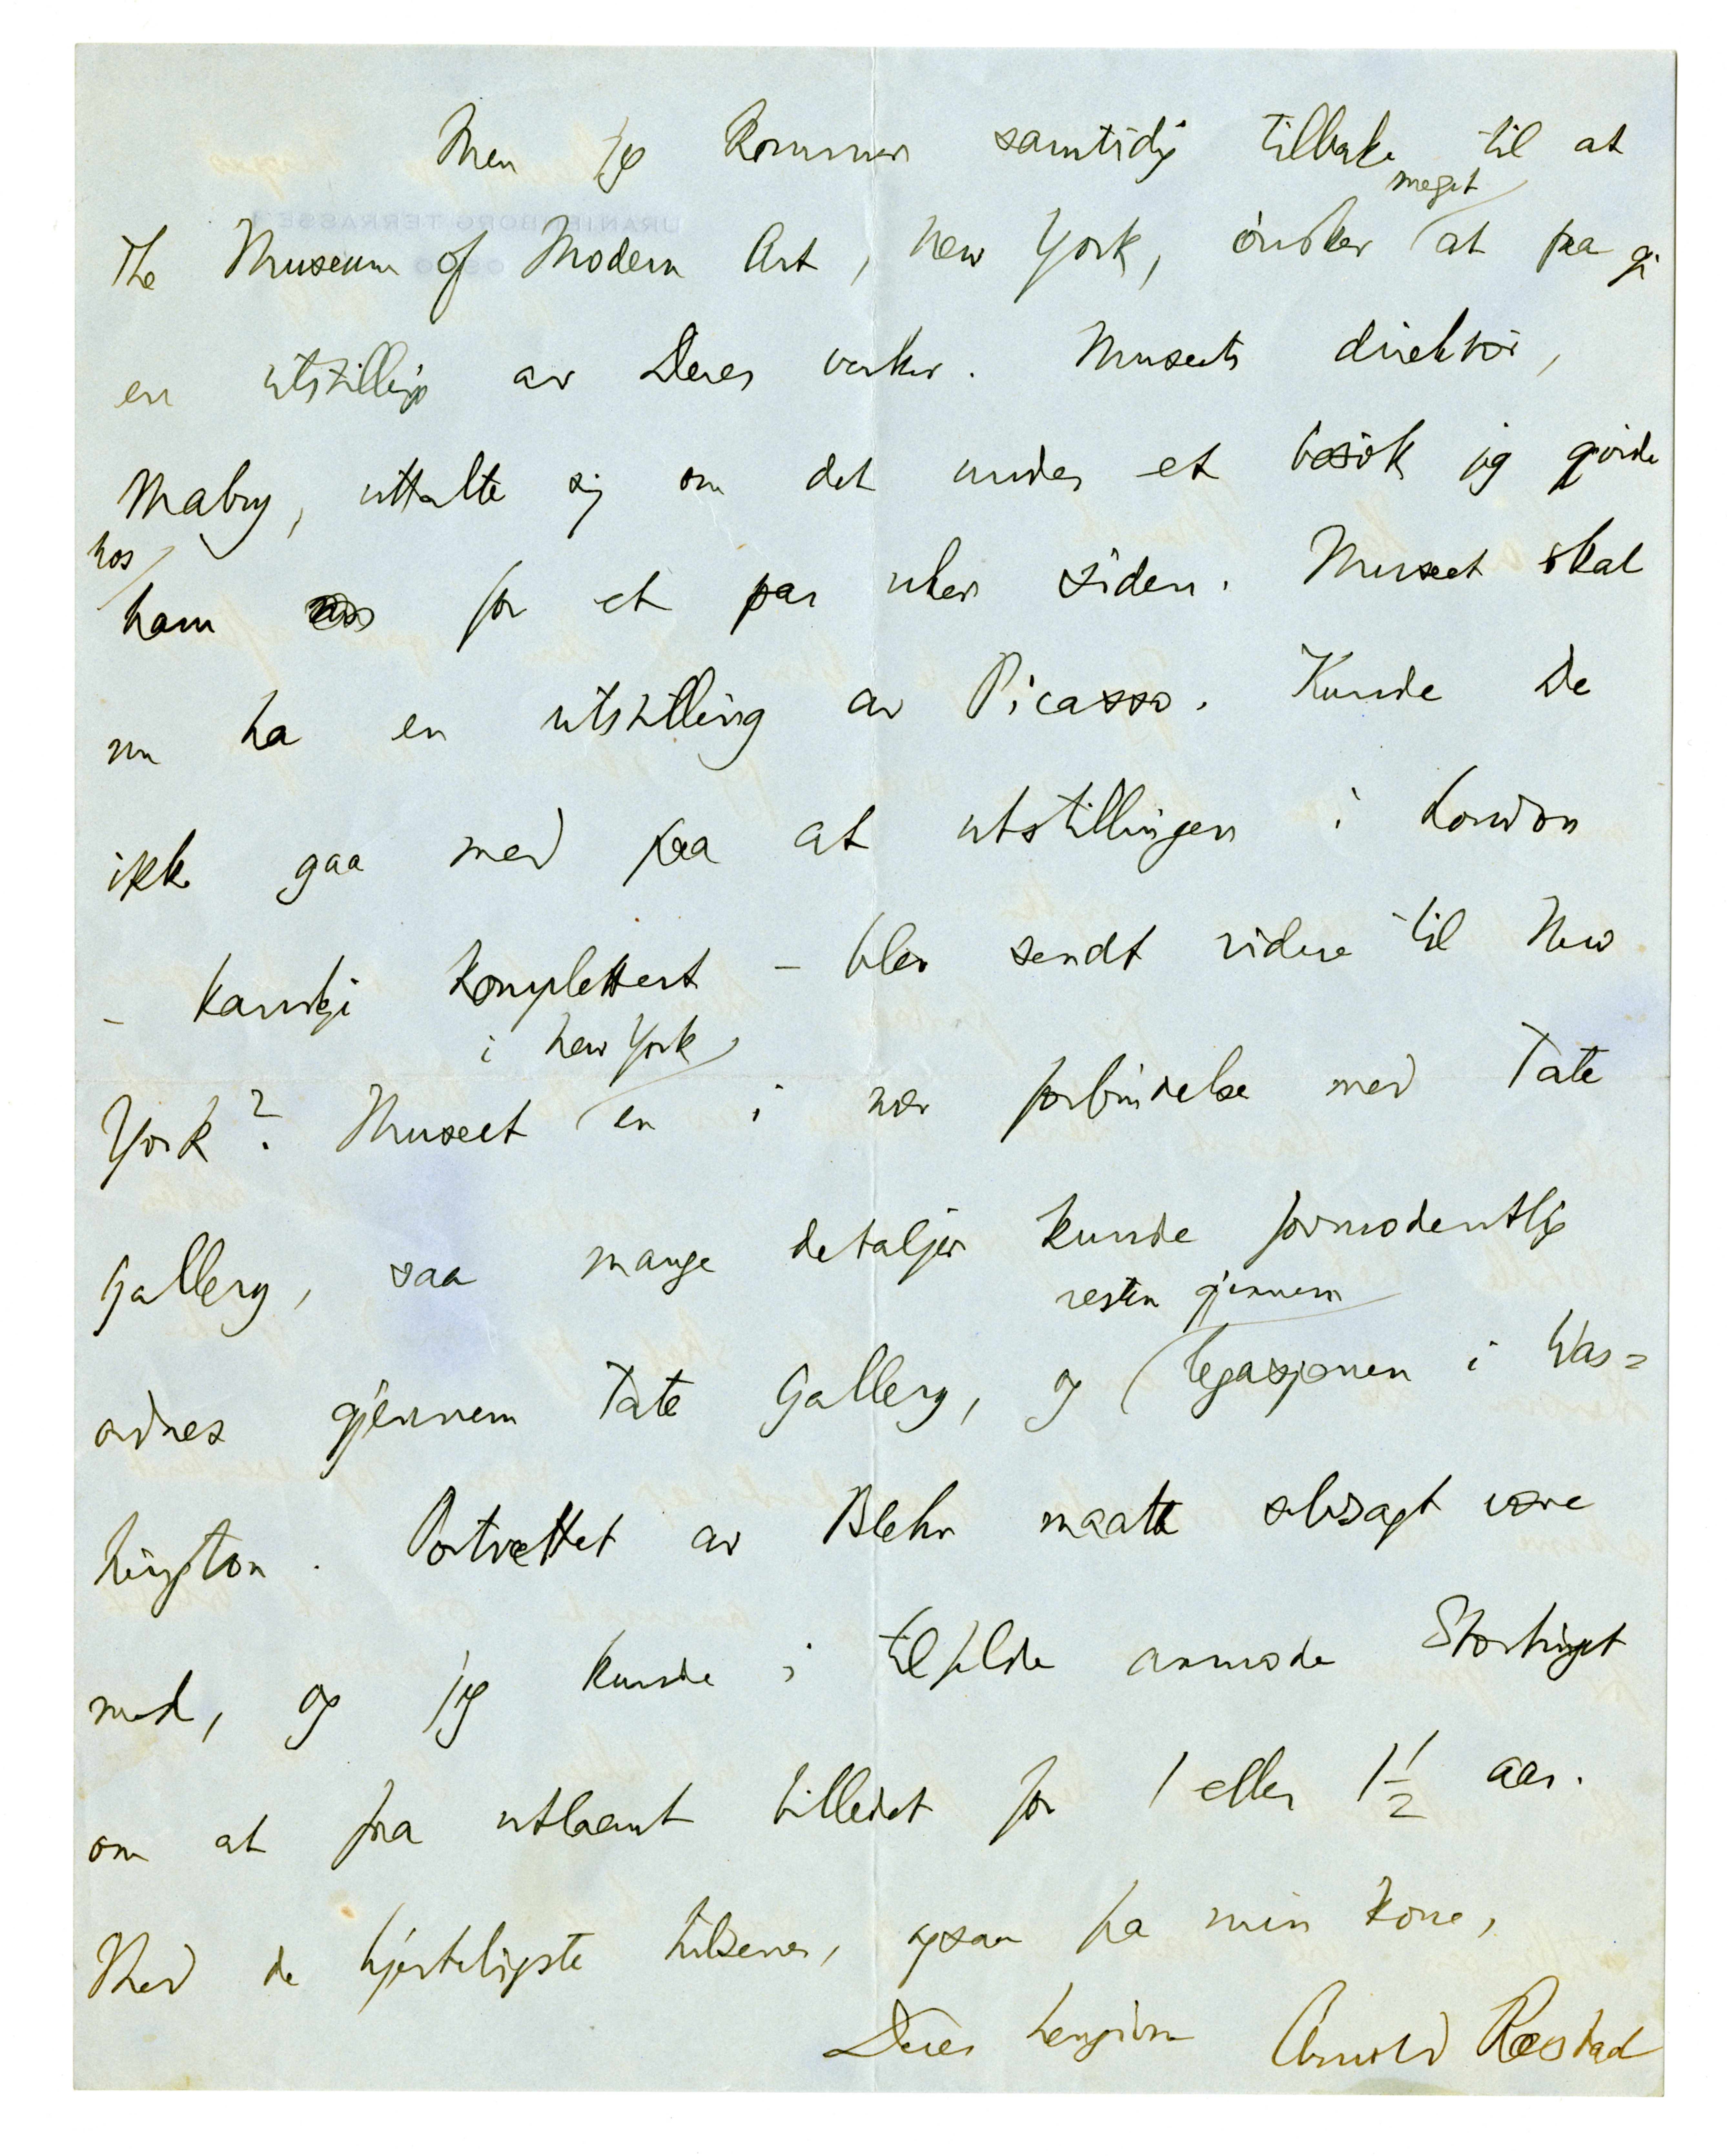 Men jeg kommer samtidig tilbake til at
The Museum of Modern Art, New York, ønsker meget at faa gi
en utstilling av Deres verker. Museets direktør,
Mabry, uttalte sig om det under et besøk jeg gjorde
hos ham for et par uker siden. Museet skal
nu ha en utstilling av Picasso. Kunde De
ikke gaa med paa at utstillingen i London
- kanskje komplettert - blev sendt videre til New
York? Museet i New York er i nær forbindelse med Tate
Gallery, saa mange detaljer kunde formodentlig
ordnes gjennem Tate Gallery, og resten gjennem legasjonen i Was=
hington. Portrættet av Blehr maatte selvsagt være
med, og jeg kunde i tilfelde anmode Stortinget
om at faa utlaant billedet for 1 eller 1 1/2 aar.
Med de hjerteligste hilsener, ogsaa fra min kone,
Deres hengivne Arnold Ræstad
URANIENBORG TERRASSE
OSLO